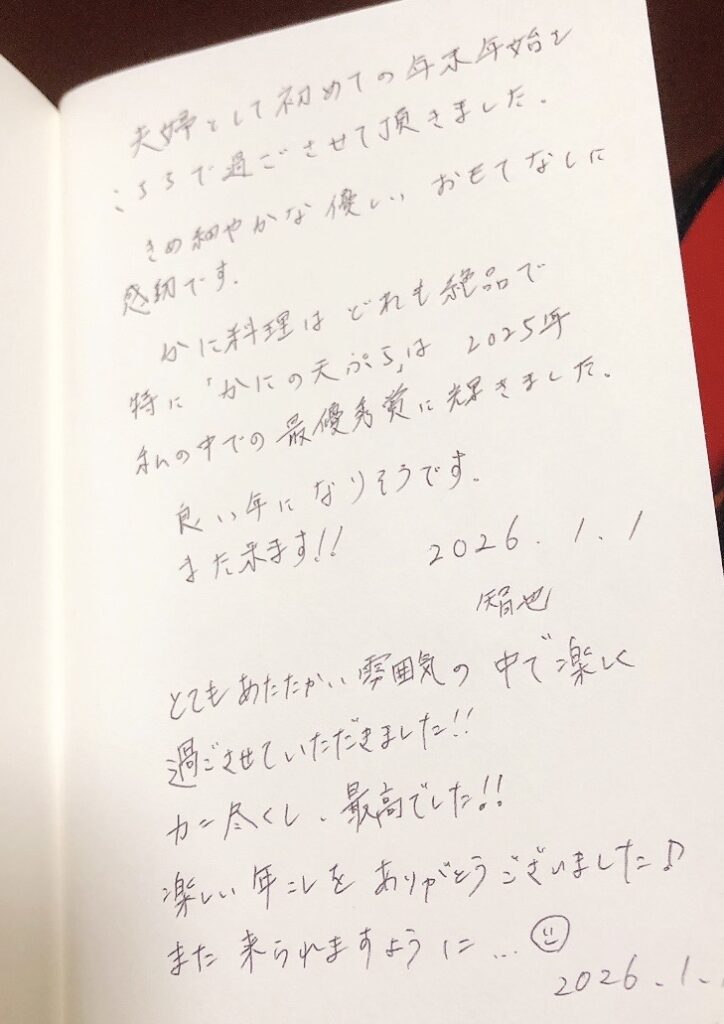 夫婦として初めての年末年始を
こちらで過ごさせて頂きました。
きめ細やかな優しいおもてなしに
感動です。
かに料理はどれも絶品で
特に「かにの天ぷら」は2025年
私の中での最優秀賞に輝きました。
良い年になりそうです。
また来ます!!
2026.1.1
智也
とてもあたたかい雰囲気の中で楽しく
過ごさせていただきました!!
カニ尽くし、最高でした!!
楽しい年こしをありがとうございました♪
また来られますように…☺
2026.1.